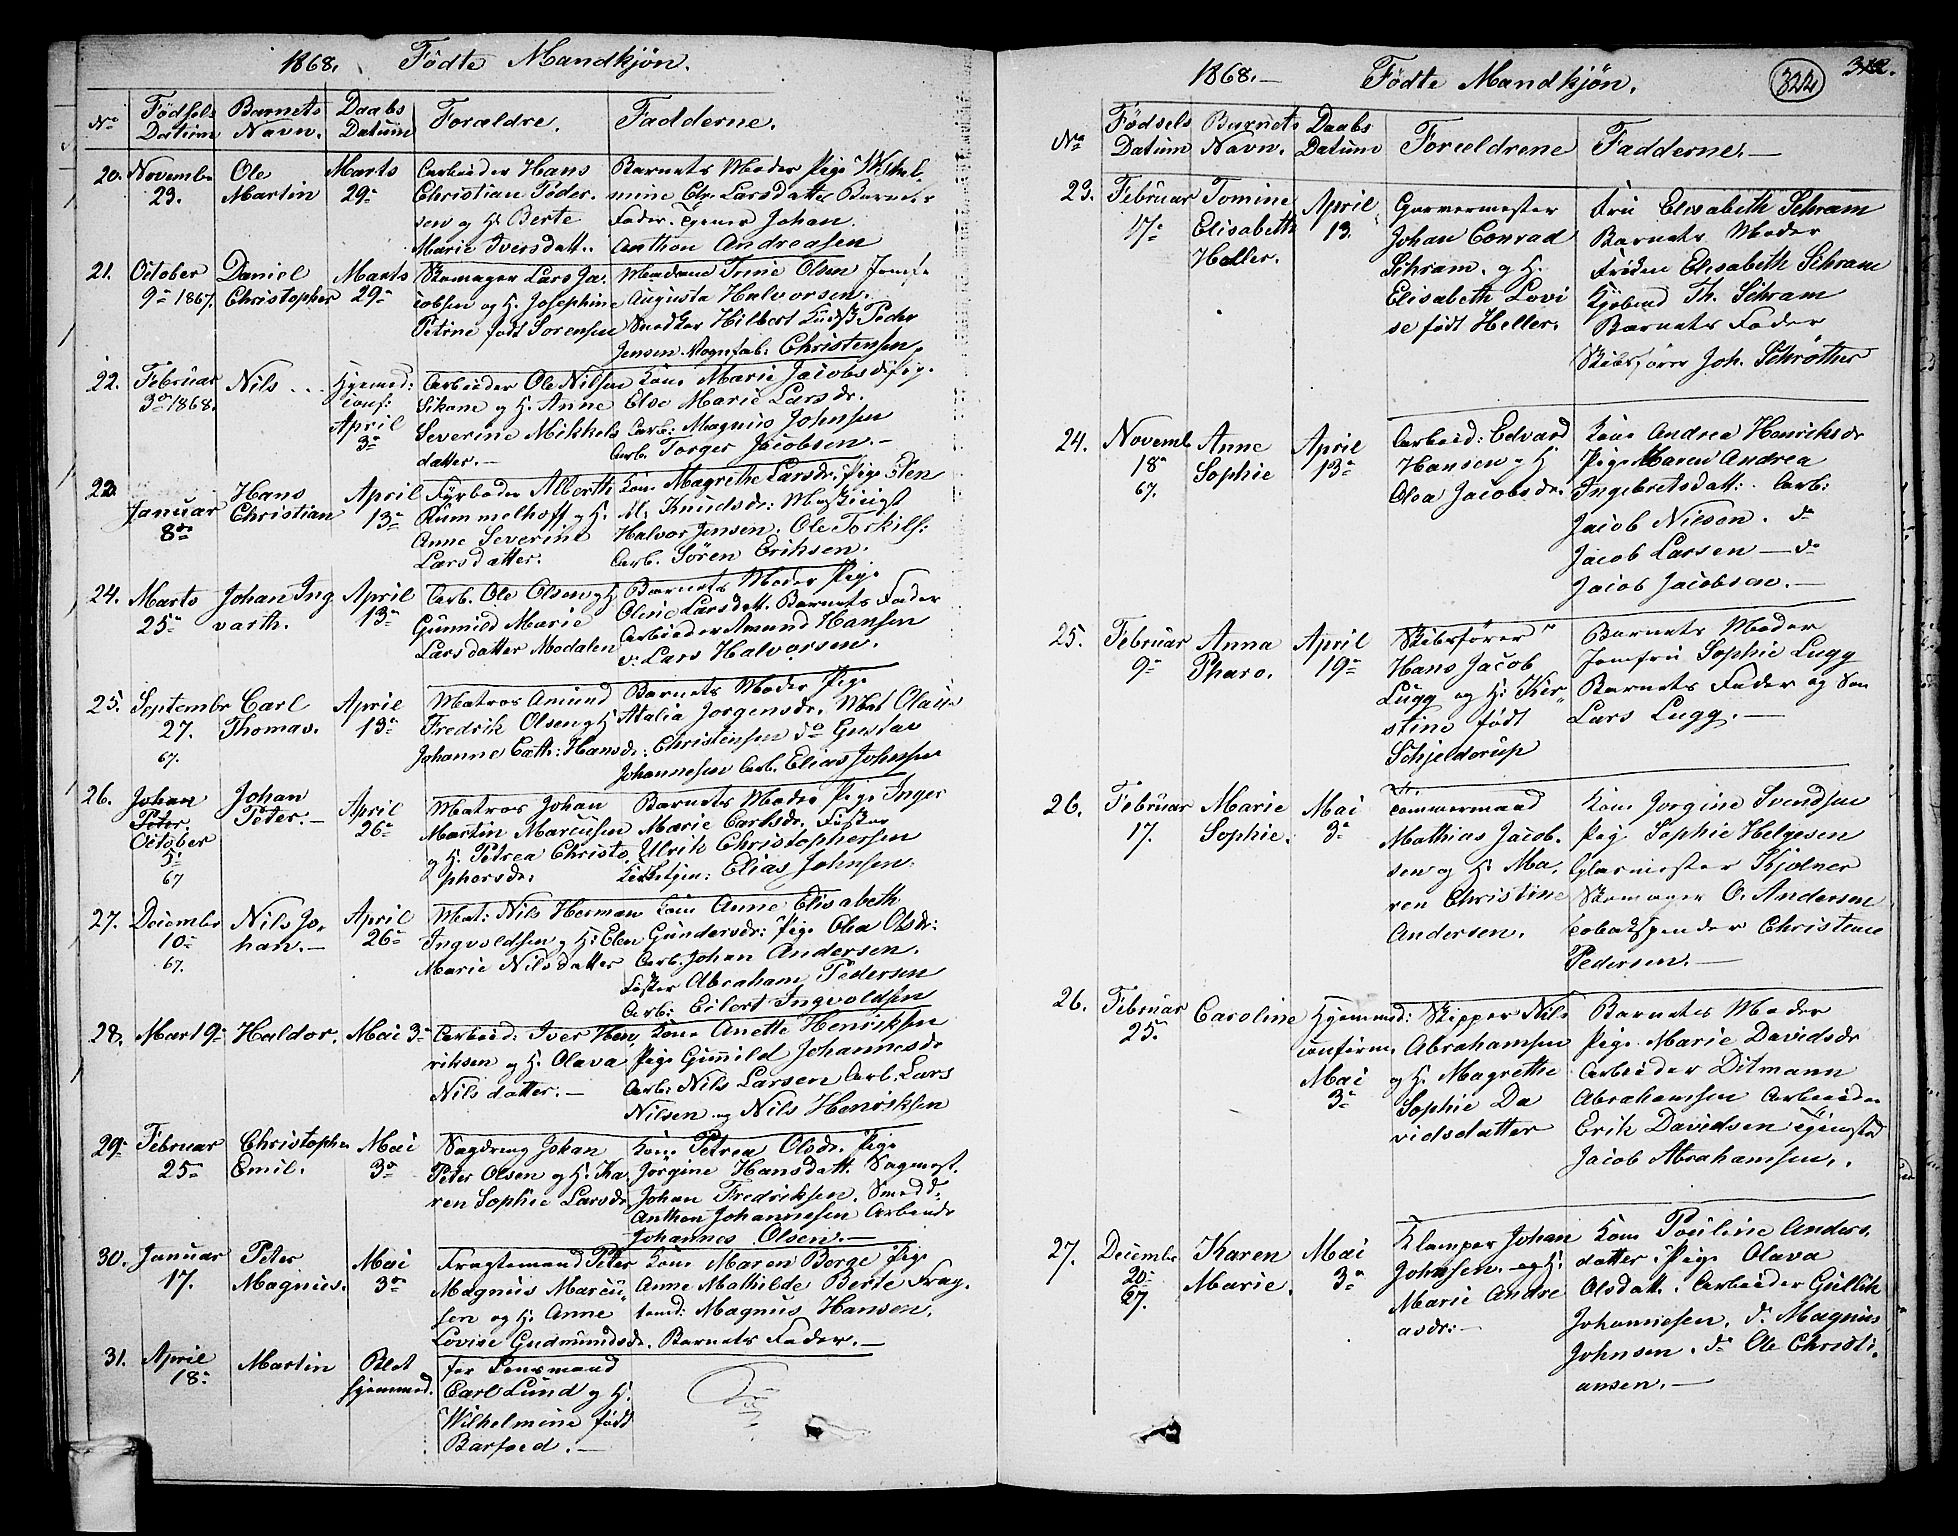 1868. Födte Mandkjøn.
No Födsels Datum Barnets Navn. Daabs Datum Forældre. Fadderne.
20. Novembr 23. Ole Martin Marts 29de
Arbeider Hans
Christian Peder-
sen og H. Berte
Marie Iversdatt.
Barnets Moder Pige Wilhel-
mine Chr. Larsdatter Barnets
Fader. Johan
Anthon Andreasen
21. October 9de 1867. Daniel Christopher Marts 29de
Skomager Lars Ja-
cobsen og H. Josephine
Petrine født Sørensen
Madam Trine Olsen Jomfr
Augusta Halvorsen.
Snedker Hilbert Peder
Jensen. Vognfab: Christensen
22. Februar 3de 1868. Nils Hjemmed: conf: April 3de
Arbeider Ole Nilsen
Sikane og H. Anne
Severine Mikkels
datter.
Kone Marie Jacobsd Pige
Else Marie Larsdr.
Arb: Magnus Johnsen
Arb. Torger Jacobsen.
23. Januar 8de Hans Christian April 13de
Fyrbøder Alberth
Rummelhoff og H.
Anne Severine
Larsdatter.
Kone Magrethe Larsdr. Pige Elen
M. Knudsdr: Maskinist
Halvor Jensen. Ole Torkils:
Arb. Sören Eriksen.
24. Marts 25de Johan Ing varth. April 13de
Arb. Ole Olsen og H
Gunnild Marie
Larsdatter Modalen
Barnets Moder Pige
Oline Larsdatt. Barnets Fader
Arbeider Amund Hansen
v: Lars Halvorsen.
25. Septembr 27. 67. Carl Thomas. April 13de
Matros Amund
Fredrik Olsen og H
Johanne Cath: Hansdr:
Barnets Moder Pige
Atalia Jorgensdr. Mat Olaus
Christensen do Gustav
Johannesen Arb. Elias Johnsen
26. Johan Peter October 67 Johan Peter. April 26de
Matros Johan
Martin Marcusen
og H. Petrea Christo
phersdr:
Barnets Moder Pige Inger
Marie Carlsdr. Fisker
Ulrik Christophersen
Elias Johnsen.
27. Decembr 10de 67. Nils Jo- han. April 26de
Mat: Nils Herman
Ingvoldsen og H: Elen
Marie Nilsdatter
Kone Anne Elisabeth
Gundersdr: Pige Olea Olsdr:
Arb. Johan Andersen.
Fisker Abraham Pedersen
Arb: Eilert Ingvoldsen
28. Mart 9de Haldor. Mai 3de
Arbeid: Iver Hen-
riksen og H. Olava
Nilsdatter.
Kone Anette Henriksen
Pige Gunnild Johannesdr
Arb: Nils Larsen Arb. Lars
Nilsen og Nils Henriksen
29. Februar 25de Christopher Emil. Mai 3de
Sagdreng Johan
Peter Olsen og H. Ka
ren Sophie Larsdr
Kone Petrea Olsdr. Pige
Jörgine Hansdatt. Sagmest.
Johan Fredriksen. Smedd:
Anthon Johannesen Arbeider
Johannes Olsen.
30. Januar 17. Peter Magnus. Mai 3de
Fragtemand Peter
Magnus Marcu-
sen og H. Anne
Lovise Gudmundsdr.
Kone Maren Borge Pige
Anne Mathilde Berte Frag-
temd: Magnus Hansen.
Barnets Fader.
31. April 18de Martin Blot hjemmed.
for Lensmand
Carl Lund og H.
Wilhelmine født
Barfoed.
1868. Födte Mandkjön. 322 312.
No Födsels Datum Barnets Navn. Daabs Datum Forældrene Fadderne.
23. Februar 17de Tomine Elisabeth Heller. April 13.
Garvermester
Johan Conrad
Schram. og H.
Elisabeth Lovi
se født Heller.
Fru Elisabeth Schram
Barnets Moder
Frøken Elisabeth Schram
Kjøbmd Th. Schram
Barnets Fader
Skibsfører Joh. Schrøther
24. Novemb. 18de 67. Anne Sophie April 13de
Arbeid: Edvard
Hansen og H
Olea Jacobsdr.
Kone Andrea Henriksdr
Pige Maren Andrea
Ingebretsdatt: Arb:
Jacob Nilson. do
Jacob Larsen — do
Jacob Jacobsen.
25. Februar 9de Anna Pharo. April 19de
Skibsfører
Hans Jacob
Lugg og H: Kir-
stine født
Schjelderup
Barnets Moder
Jomfru Sophie Lugg
Barnets Fader og
Lars Lugg.
26. Februar 17. Marie Sophie. Mai 3de
Tømmermand
Mathias Jacob-
sen og H. Ma-
ren Christine
Andersen.
Kone Jorgine Svendsen
Pige Sophie Helgesen
Glarmester Kjølner
Skomager O. Andersen
Tobakspinder Christine
Pedersen.
26. Februar 25de Caroline Hjemmed: confirm. Mai 3de
Skipper Nils
Abrahamsen
og H. Magrethe
Sophie Da
vidsdatter
Barnets Moder
Pige Marie Davidsdr
Arbeider Ditmann
Abrahamsen Arbeider
Erik Davidsen Tjenestd
Jacob Abrahamsen.
27. Decembr 20de 67. Karen Marie. Mai 3de
Klamper Johan
Johnsen. og H.
Marie Andre
asdr:
Kone Pouline Anders-
datter. Pige Olava
Olsdatt. Arbeider Gullik
Johannesen. do Magnus
Johnsen. do Ole Christi-
ansen.